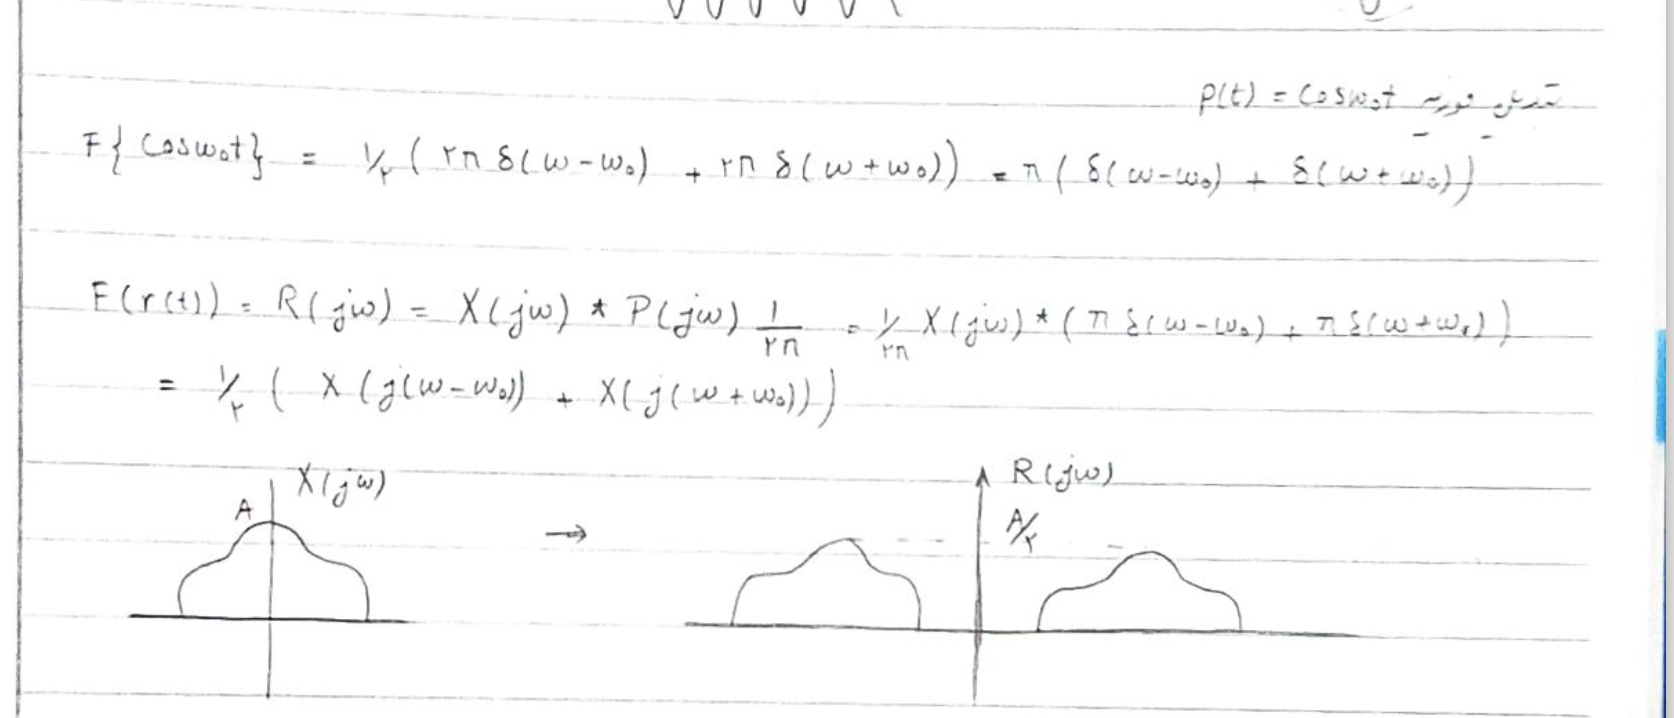 تبدیل فوریه p(t) = Cosω₀t
F{Cosω₀t} = ۱/۲ (۲π δ(ω-ω₀) + ۲π δ(ω+ω₀)) = π (δ(ω-ω₀) + δ(ω+ω₀))
F(r(t)) = R(jω) = X(jω) * P(jω) ۱/۲π = ۱/۲π X(jω) * (π δ(ω-ω₀) + π δ(ω+ω₀))
= ۱/۲ (X(j(ω-ω₀)) + X(j(ω+ω₀)))
X(jω)
A
→
R(jω)
A/۲